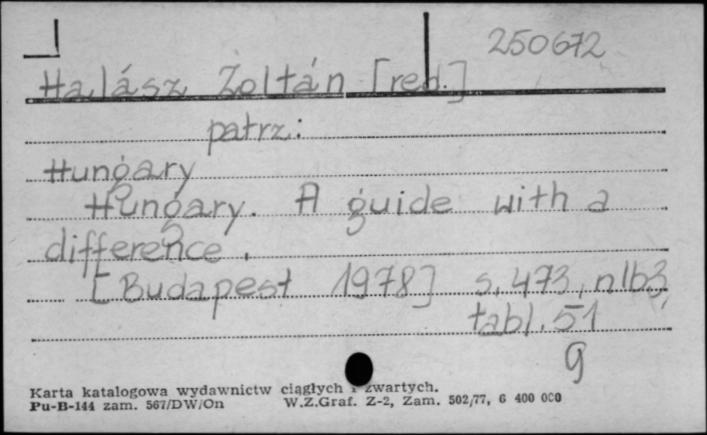 250672
Halász Zoltán [red.]
patrz:
Hungary
Hungary. A guide with a
difference.
[Budapest 1978] s. 473, nlb3,
tabl. 51
g
Karta katalogowa wydawnictw ciągłych i zwartych.
Pu-B-144 zam. 567/DW/On W.Z.Graf. Z-2, Zam. 502/77, 6 400 000